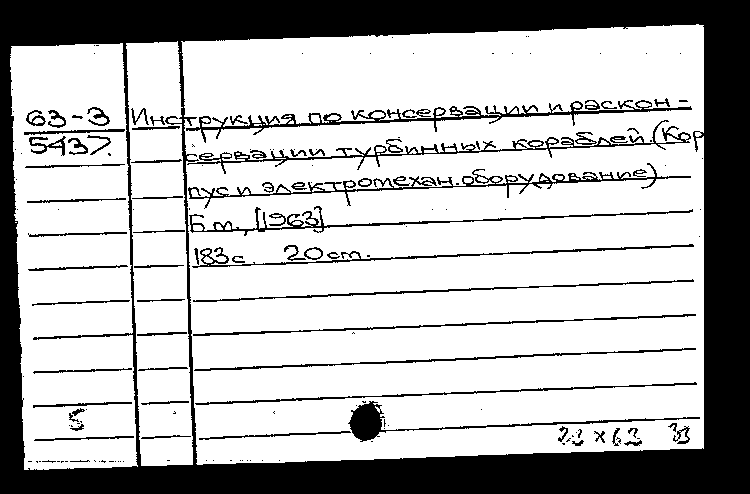 63-3 Инструкция по консервации и раскон-
5437. сервации турбинных кораблей.(Кор
пус и электромехан.оборудование)
Б.м., [1963]
183с. 20см.
5
23 х 63